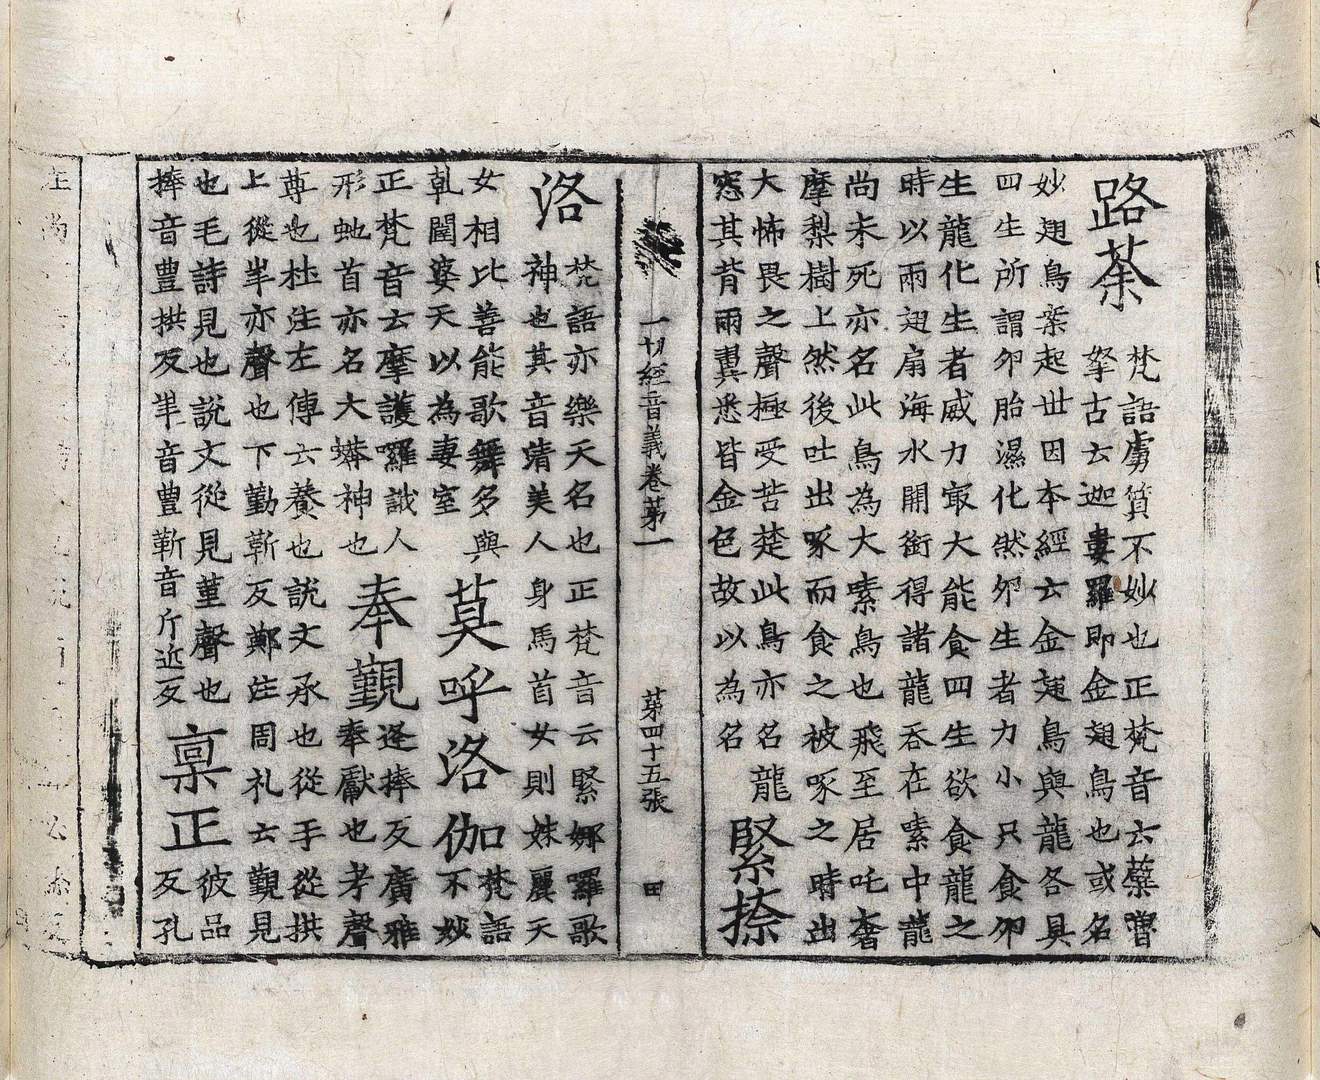 路荼
梵語虜質不妙也正梵音云蘗嚕
拏古云迦婁羅即金翅鳥也或名
妙翅鳥案起世因本經云金翅鳥與龍各具
四生所謂卵胎濕化然卵生者力小只食卵
生龍化生者威力㝡大能食四生欲食龍之
時以兩翅扇海水開銜得諸龍吞在嗉中龍
尚未死亦名此鳥為大嗉鳥也飛至居吒奢
摩梨樹上然後吐出啄而食之被啄之時出
大怖畏之聲極受苦楚此鳥亦名龍
窓其背兩翼悉皆金色故以為名
緊捺
一切經音義卷苐一 苐四十五張 田
洛
梵語亦樂天名也正梵音云緊娜囉歌
神也其音清美人身馬首女則姝麗天
女相比善能歌舞多與
乹闥婆天以為妻室
莫呼洛伽
梵語
不妙
正梵音云摩護囉誐人
形虵首亦名大蟒神也
奉覲
逢捧反廣雅
奉獻也考聲
尊也杜注左傳云養也說文承也從手從拱
上從丰亦聲也下勤靳反鄭注周礼云覲見
也毛詩見也說文從見堇聲也
捧音豊拱反丰音豊靳音斤近反
稟正
彼品
反孔